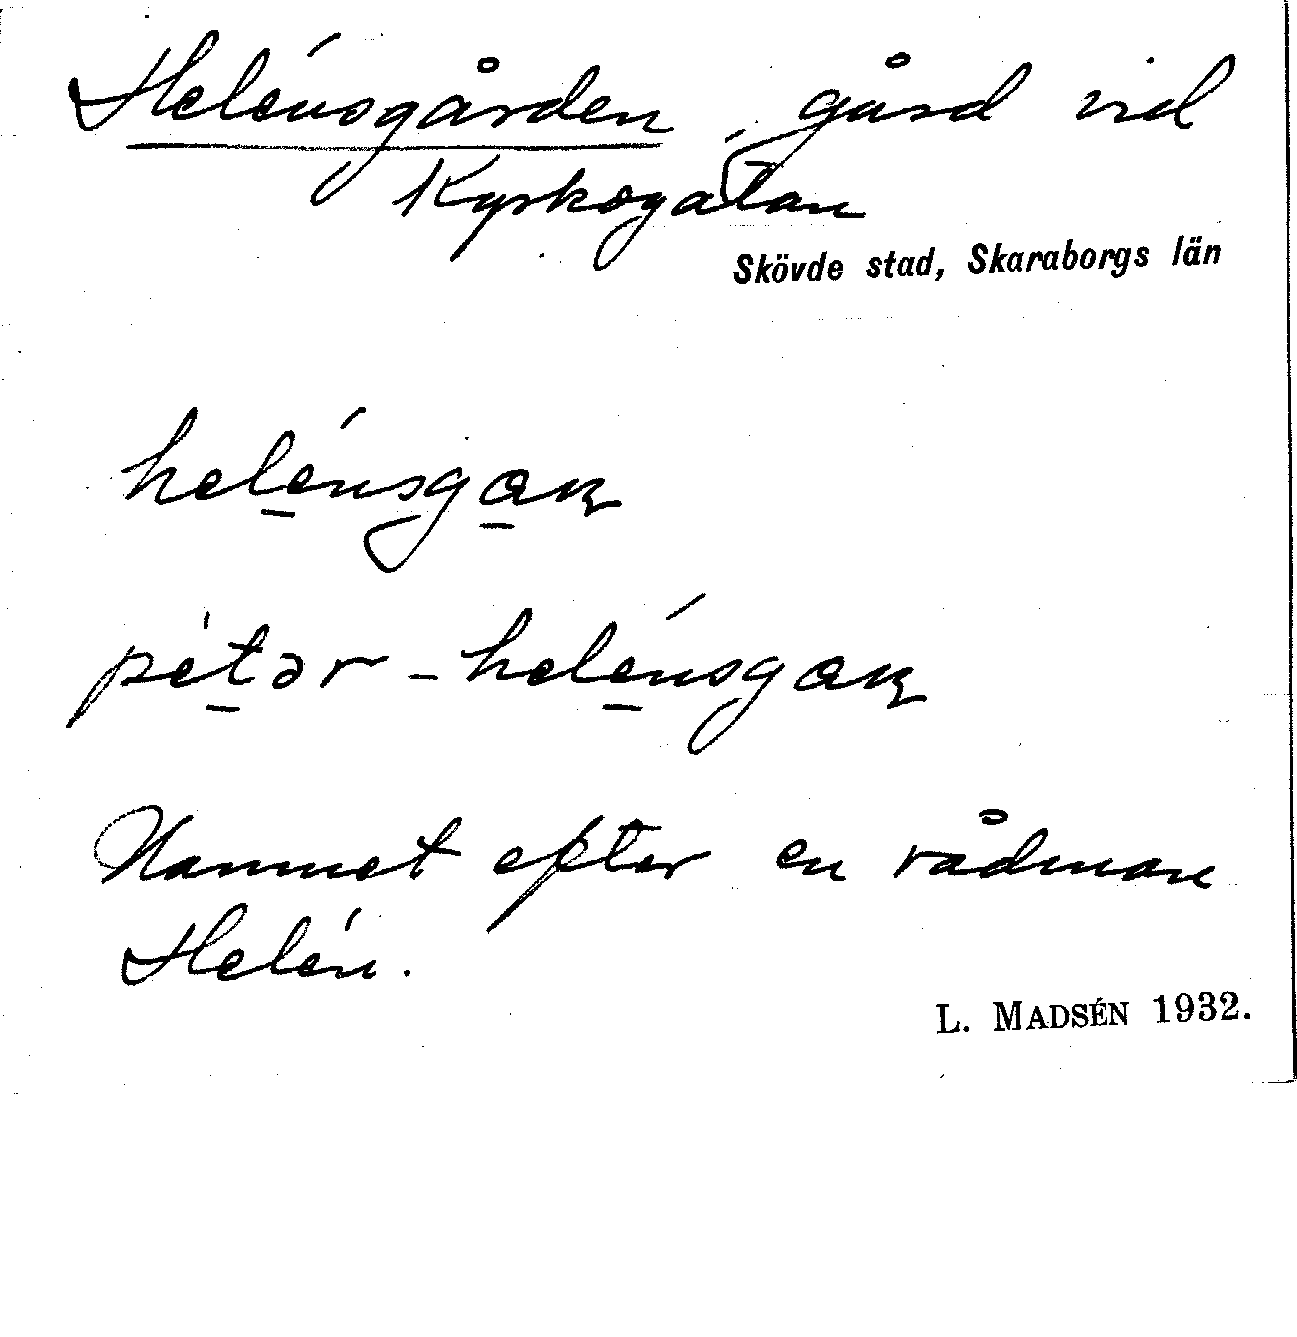 Helénsgården, gård vid
Kyrkogatan
Skövde stad, Skaraborgs län
helénsgaɳ
pétər-helénsgaɳ
Namnet efter en rådman
Helén.
L. MADSÉN 1932.